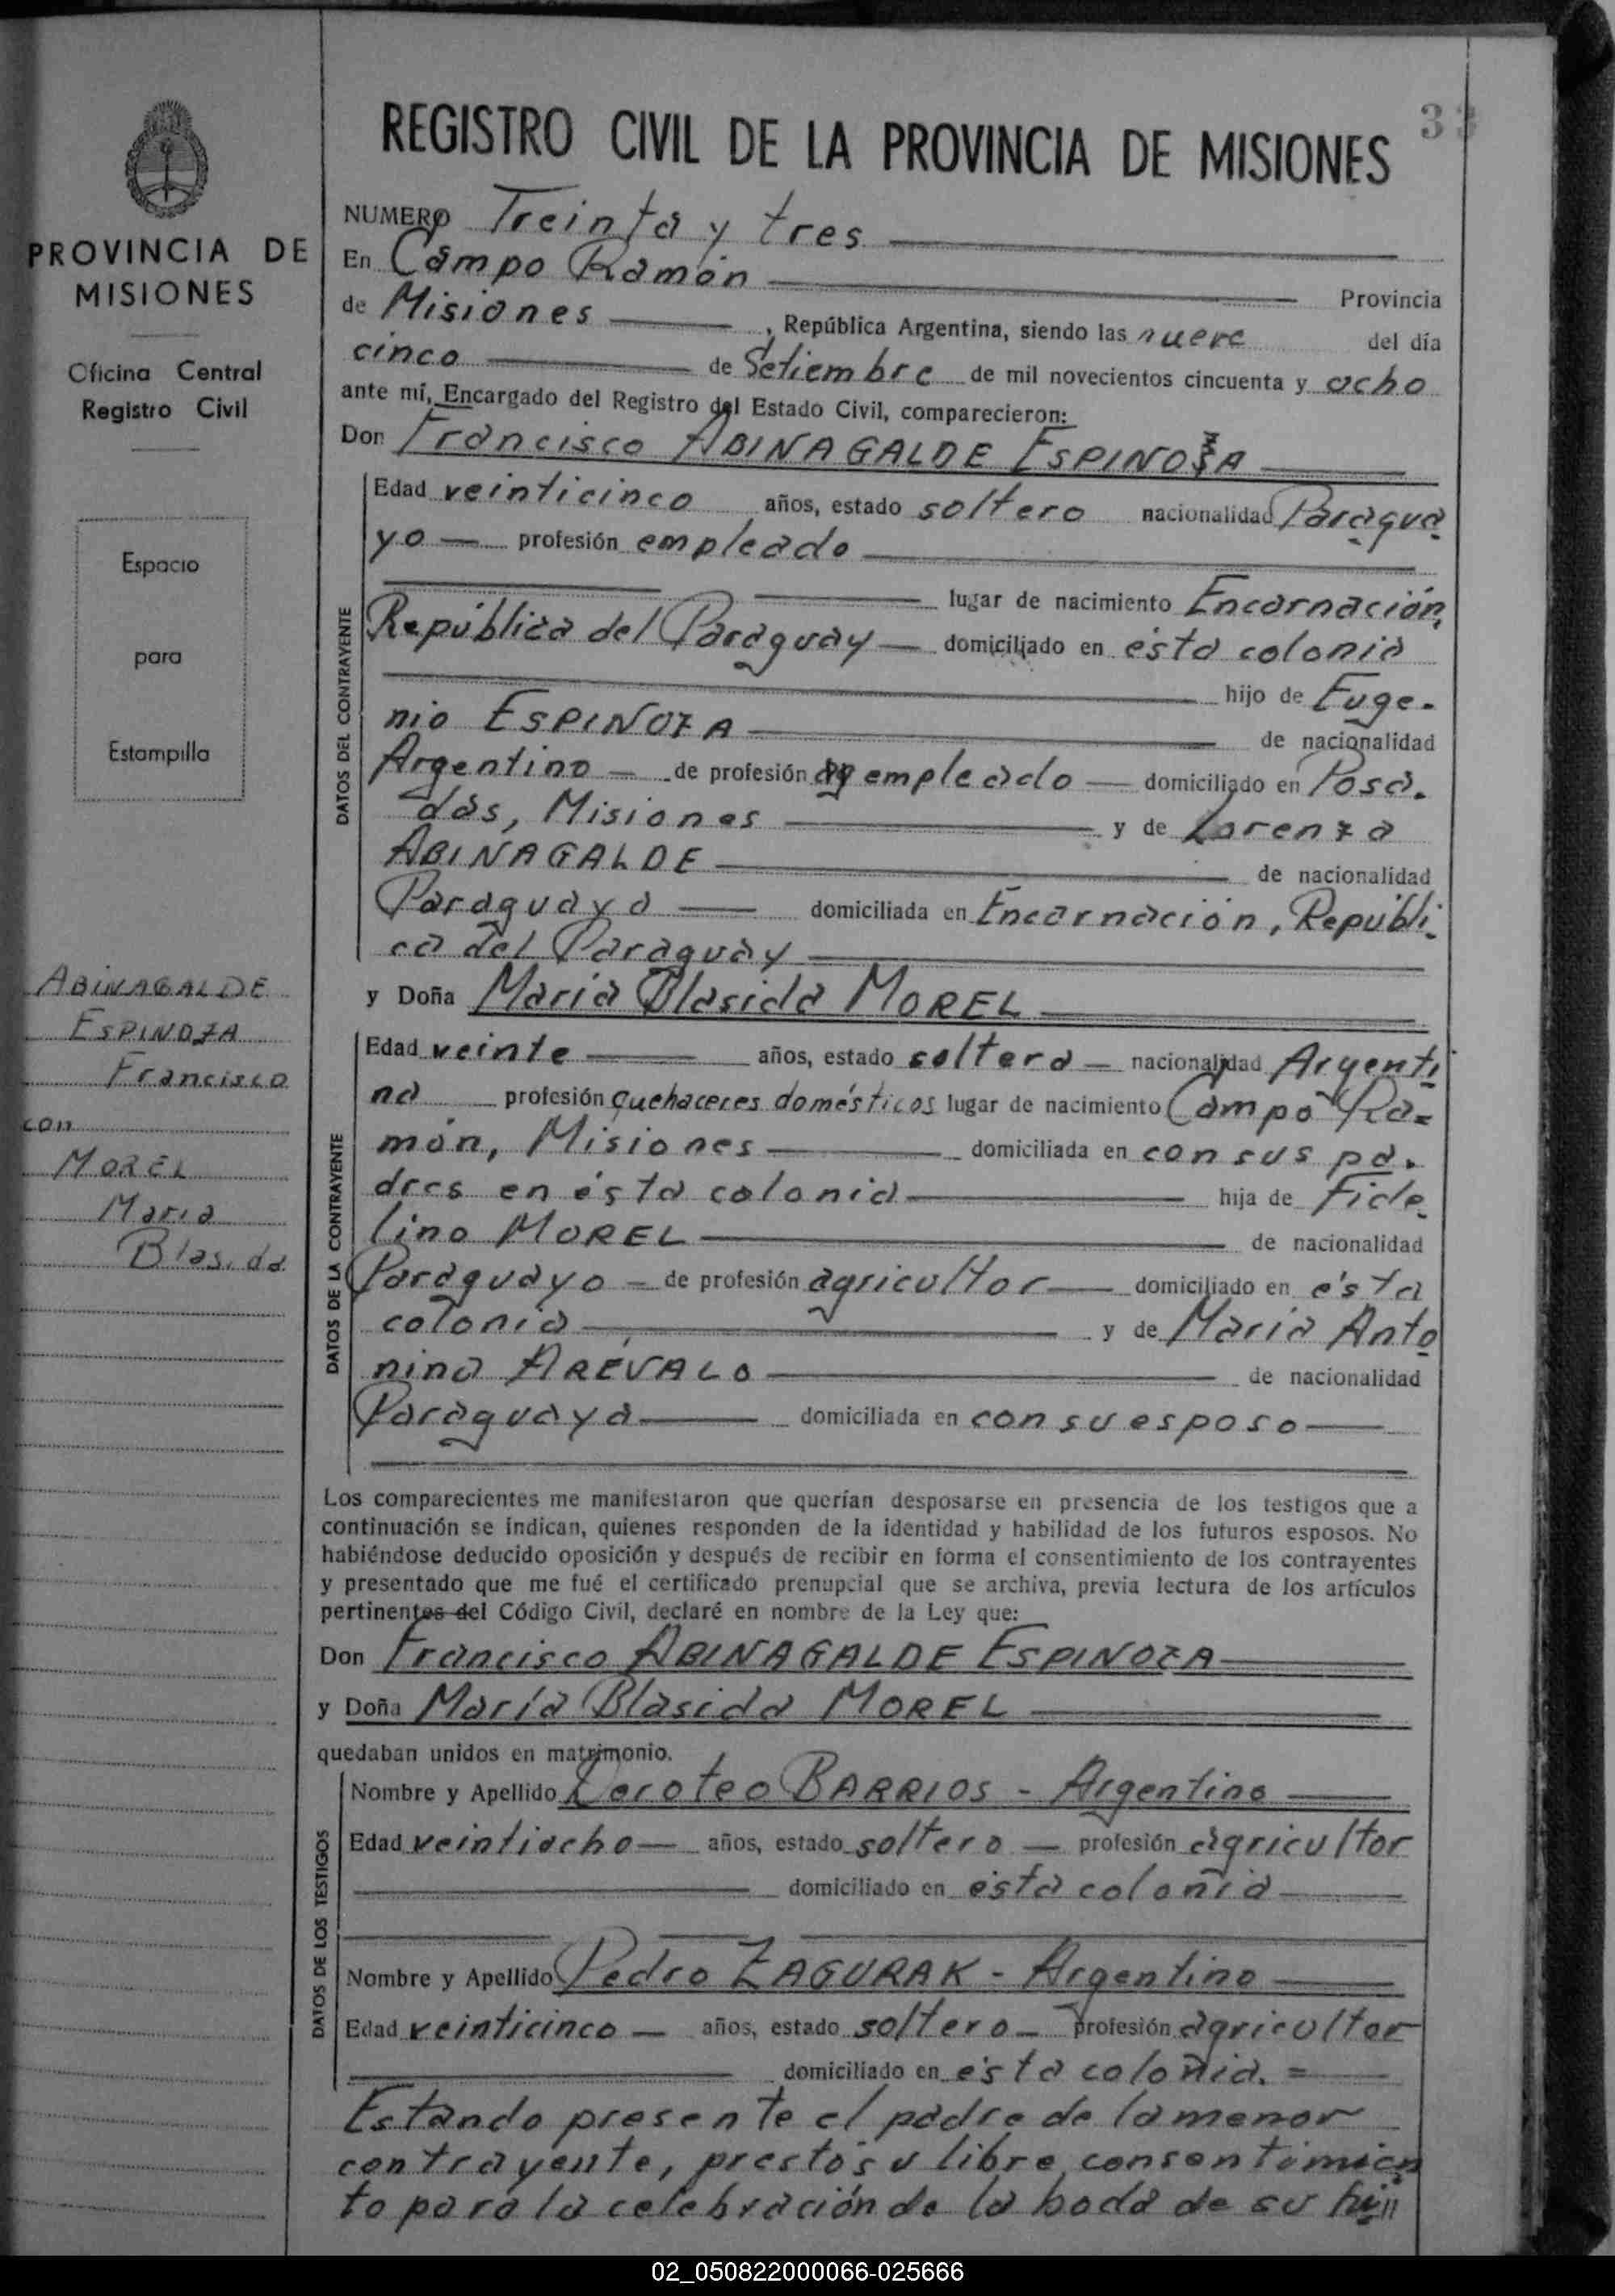 33
REGISTRO CIVIL DE LA PROVINCIA DE MISIONES
PROVINCIA DE
MISIONES
Oficina Central
Registro Civil
Espacio
para
Estampilla
ABINAGALDE
ESPINOZA
Francisco
con
MOREL
Maria
Blasida
NUMERO Treinta y tres
En Campo Ramón
Provincia
de Misiones, República Argentina, siendo las nueve del día
cinco de Setiembre de mil novecientos cincuenta y ocho
ante mí, Encargado del Registro del Estado Civil, comparecieron:
Don Francisco ABINAGALDE ESPINOZA
DATOS DEL CONTRAYENTE
Edad veinticinco años, estado soltero nacionalidad Paragua
yo profesión empleado
lugar de nacimiento Encarnación,
República del Paraguay domiciliado en ésta colonia
hijo de Euge-
nio ESPINOZA
de nacionalidad
Argentino de profesión empleado domiciliado en Posa-
das, Misiones y de Lorenza
ABINAGALDE
de nacionalidad
Paraguaya domiciliada en Encarnación, Repúbli-
ca del Paraguay
y Doña María Blasida MOREL
DATOS DE LA CONTRAYENTE
Edad veinte años, estado soltera nacionalidad Argenti
na profesión quehaceres domésticos lugar de nacimiento Campo Ra=
món, Misiones domiciliada en con sus pa-
dres en ésta colonia hija de Fide-
lino MOREL
de nacionalidad
Paraguayo de profesión agricultor domiciliado en ésta
colonia y de María Anto
nina ARÉVALO
de nacionalidad
Paraguaya domiciliada en con su esposo
Los comparecientes me manifestaron que querían desposarse en presencia de los testigos que a
continuación se indican, quienes responden de la identidad y habilidad de los futuros esposos. No
habiéndose deducido oposición y después de recibir en forma el consentimiento de los contrayentes
y presentado que me fué el certificado prenupcial que se archiva, previa lectura de los artículos
pertinentes del Código Civil, declaré en nombre de la Ley que:
Don Francisco ABINAGALDE ESPINOZA
y Doña María Blasida MOREL
quedaban unidos en matrimonio.
DATOS DE LOS TESTIGOS
Nombre y Apellido Doroteo BARRIOS - Argentino
Edad veintiocho años, estado soltero profesión agricultor
domiciliado en ésta colonia
Nombre y Apellido Pedro ZAGURAK - Argentino
Edad veinticinco años, estado soltero profesión agricultor
domiciliado en ésta colonia. =
Estando presente el padre de la menor
contrayente, prestó su libre consentimien
to para la celebración de la boda de su
02_050822000066-025666